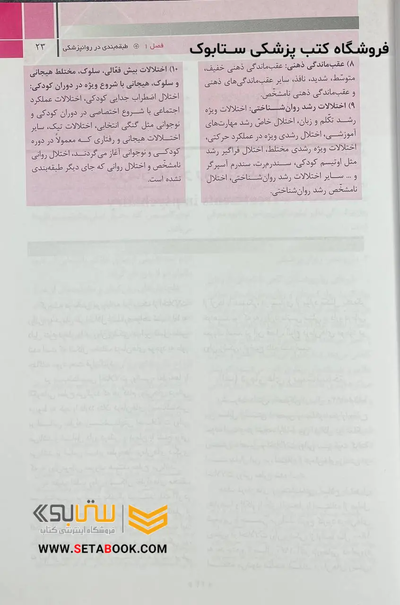 فروشگاه کتب پزشکی ستابوک
فصل ۱ طبقه‌بندی در روانپزشکی ۲۳
۸) عقب‌ماندگی ذهنی: عقب‌ماندگی ذهنی خفیف،
متوسط، شدید، نافذ، سایر عقب‌ماندگی‌های ذهنی
و عقب‌ماندگی ذهنی نامشخص
۹) اختلالات رشد روان‌شناختی: اختلالات ویژه
رشد تکلّم و زبان، اختلال خاصّ رشد مهارت‌های
آموزشی، اختلال رشدی ویژه در عملکرد حرکتی،
اختلالات ویژه رشدی مختلط، اختلال فراگیر رشد
مثل اوتیسم کودکی، سندرم‌رت، سندرم آسپرگر
و ... سایر اختلالات رشد روان‌شناختی، اختلال
نامشخص رشد روان‌شناختی.
۱۰) اختلالات بیش فعّالی، سلوک، مختلط هیجانی
و سلوک، هیجانی با شروع ویژه در دوران کودکی:
اختلال اضطراب جدایی کودکی، اختلالات عملکرد
اجتماعی با شروع اختصاصی در دوران کودکی و
نوجوانی مثل گنگی انتخابی، اختلالات تیک، سایر
اختلالات هیجانی و رفتاری که معمولاً در دوره
کودکی و نوجوانی آغاز می‌گردند، اختلال روانی
نامشخص و اختلال روانی که جای دیگر طبقه‌بندی
نشده است.
ستابوک
فروشگاه اینترنتی کتاب
WWW.SETABOOK.COM